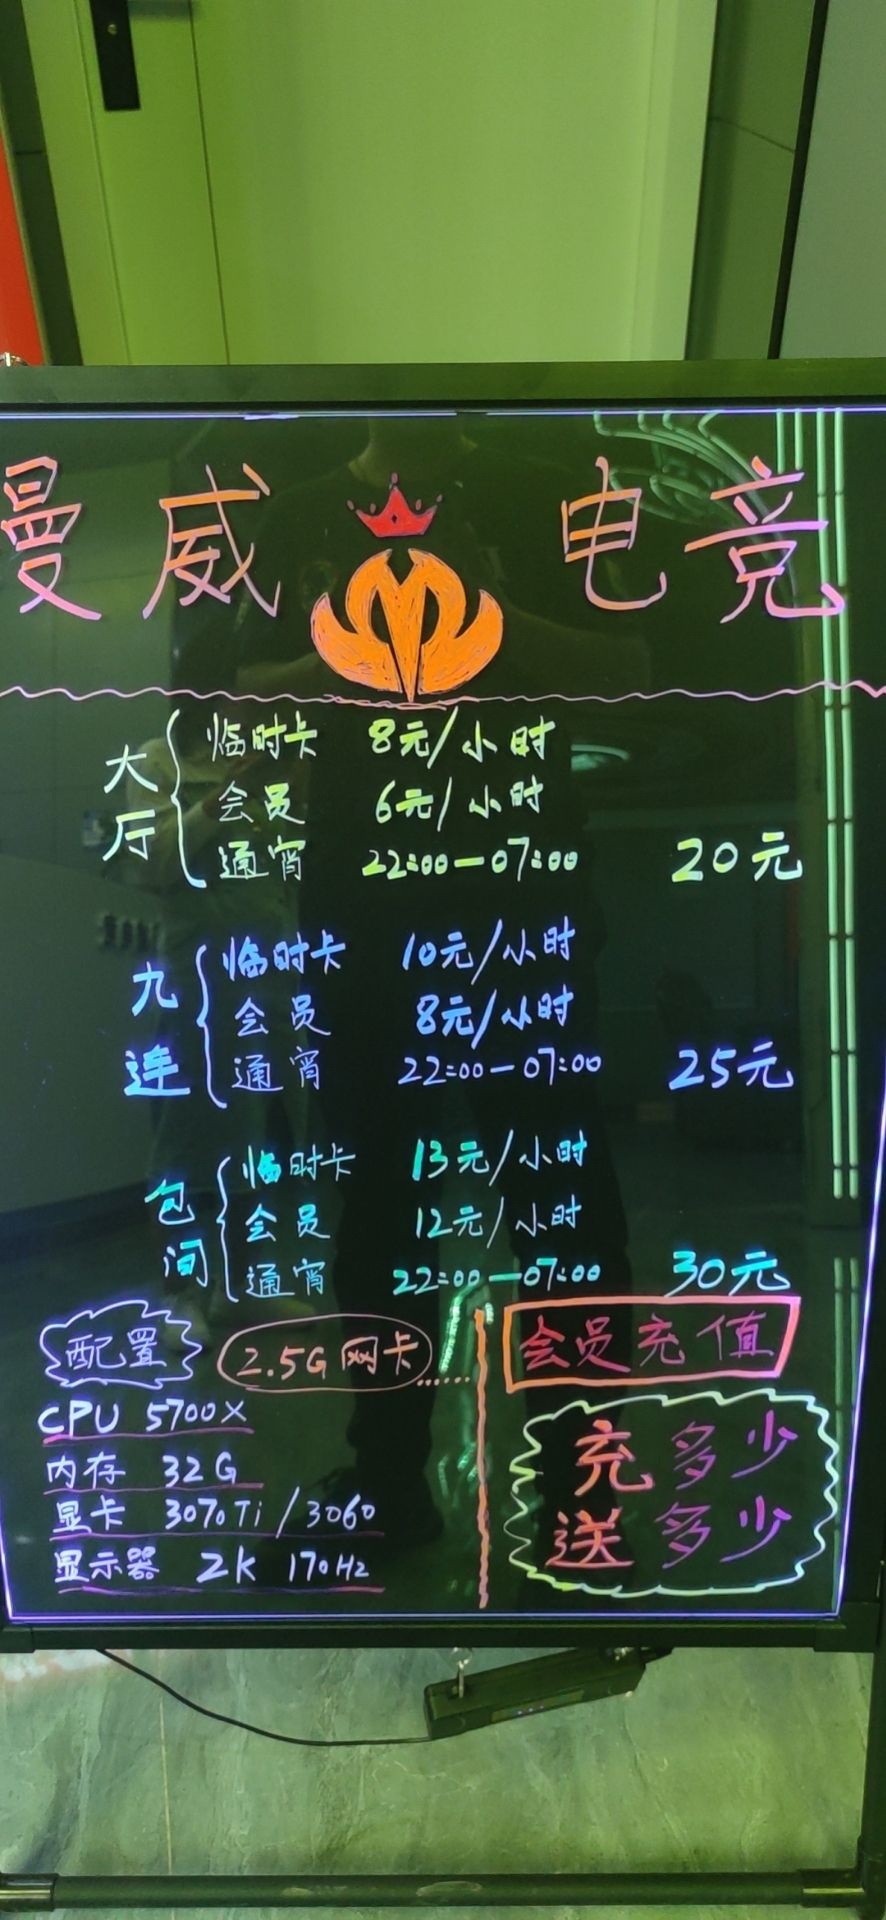 曼威 电竞
大厅
临时卡 8元/小时
会员 6元/小时
通宵 22:00—07:00 20元
九连
临时卡 10元/小时
会员 8元/小时
通宵 22:00—07:00 25元
包间
临时卡 13元/小时
会员 12元/小时
通宵 22:00—07:00 30元
配置 2.5G网卡……
CPU 5700X
内存 32G
显卡 3070Ti/3060
显示器 2K 170Hz
会员充值
充多少
送多少